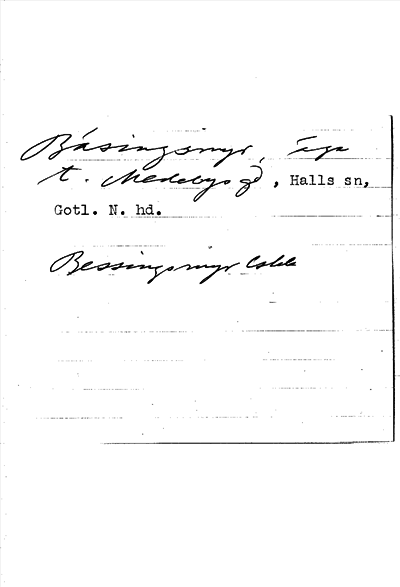 Båsingsmyr, äga
t. Medebys gd, Halls sn,
Gotl. N. hd.
Bessingsmyr